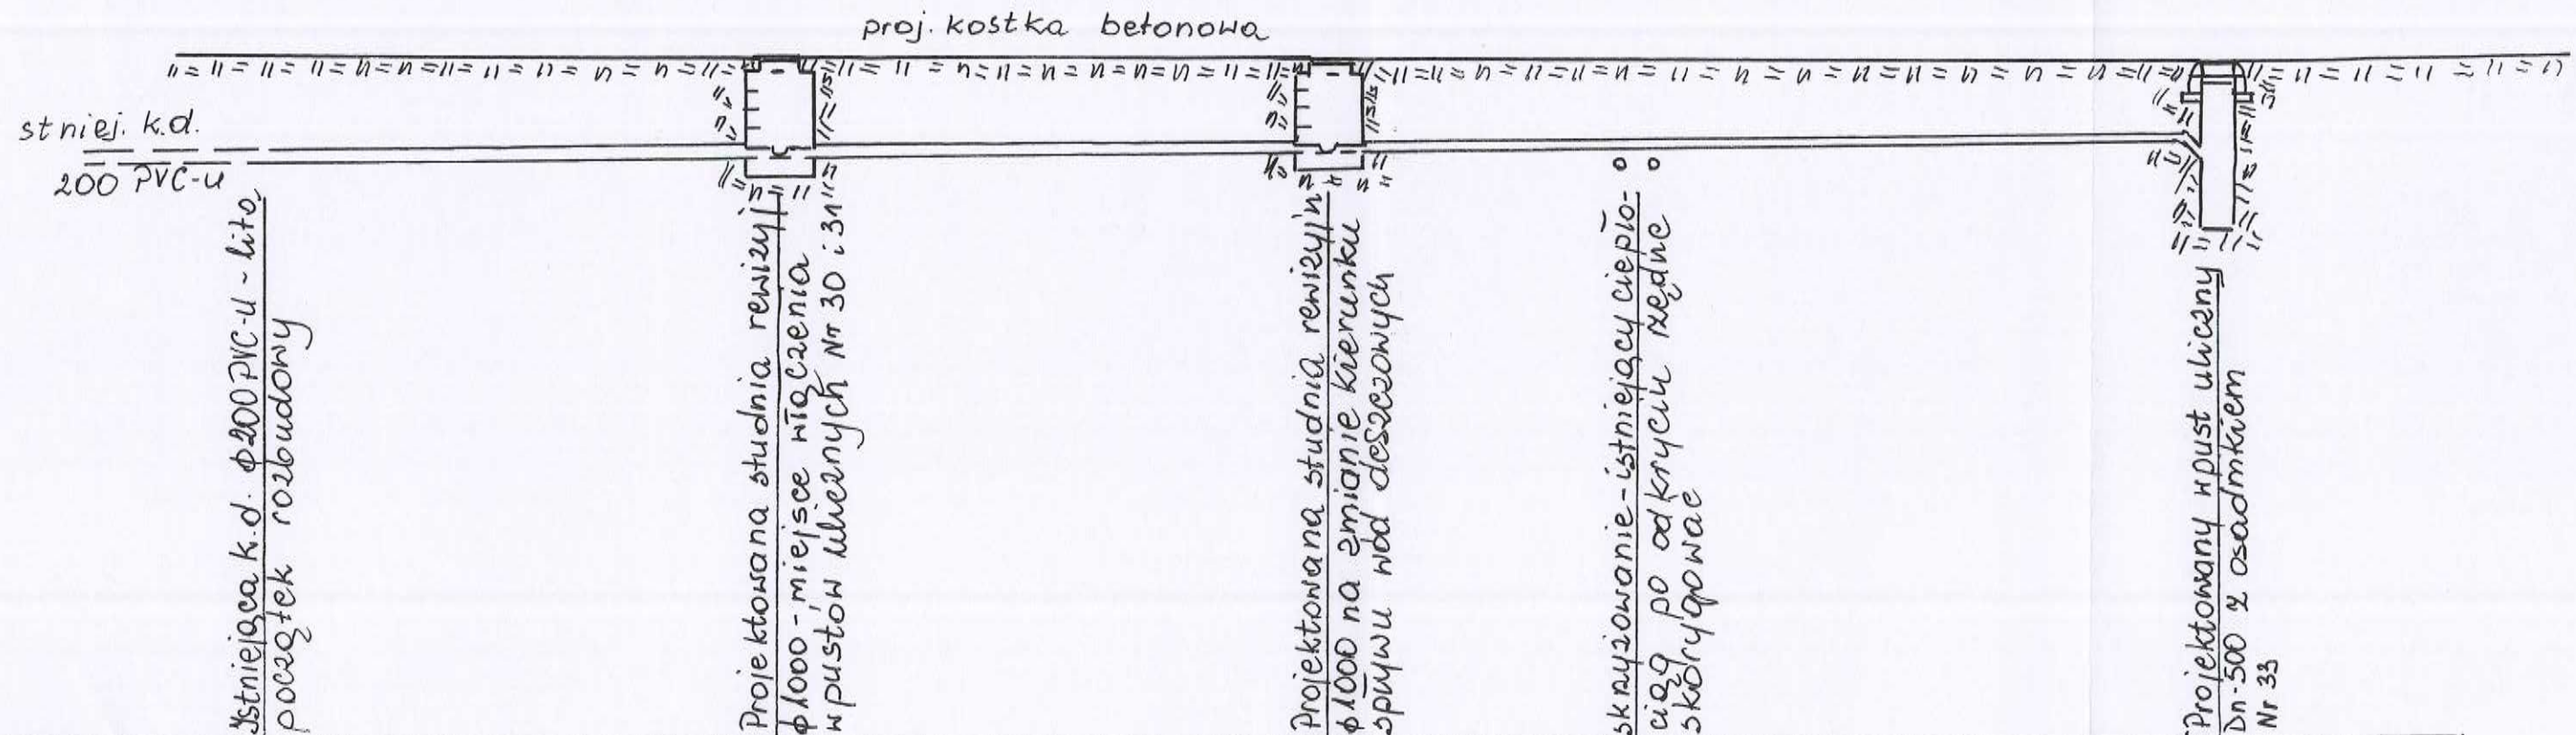 proj. kostka betonowa
stniej. k.d.
200 PVC-u
Istniejąca k.d. ϕ200 PVC-u - lito,
początek rozbudowy
Projektowana studnia rewizyj
ϕ1000 - miejsce włączenia
wpustów ulicznych Nr 30 i 31"
Projektowana studnia rewizyjn
ϕ1000 na zmianie kierunku
spływu wód deszczowych
skrzyżowanie - istniejący ciepło-
ciąg po odkryciu rzędne
skorygować
Projektowany wpust uliczny
Dn-500 z osadnikiem
Nr 33